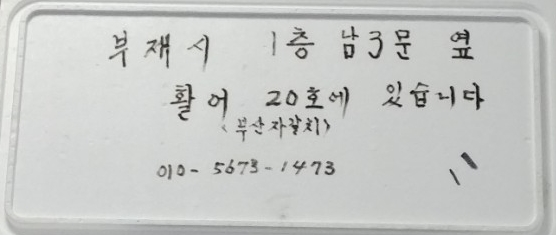 부재시 1층 남3문 옆
활어 20호에 있습니다
<부산자갈치>
010-5673-1473